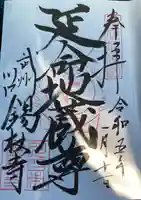 奉拝
令和五年
一月
延命地蔵尊
武州
川口
錫杖寺